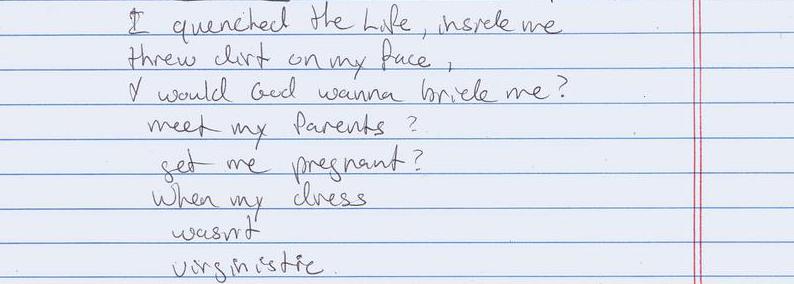 I quenched the Life, inside me
threw dirt on my face,
Y would God wanna bride me?
meet my Parents?
get me pregnant?
When my dress
wasnt
virginistic.